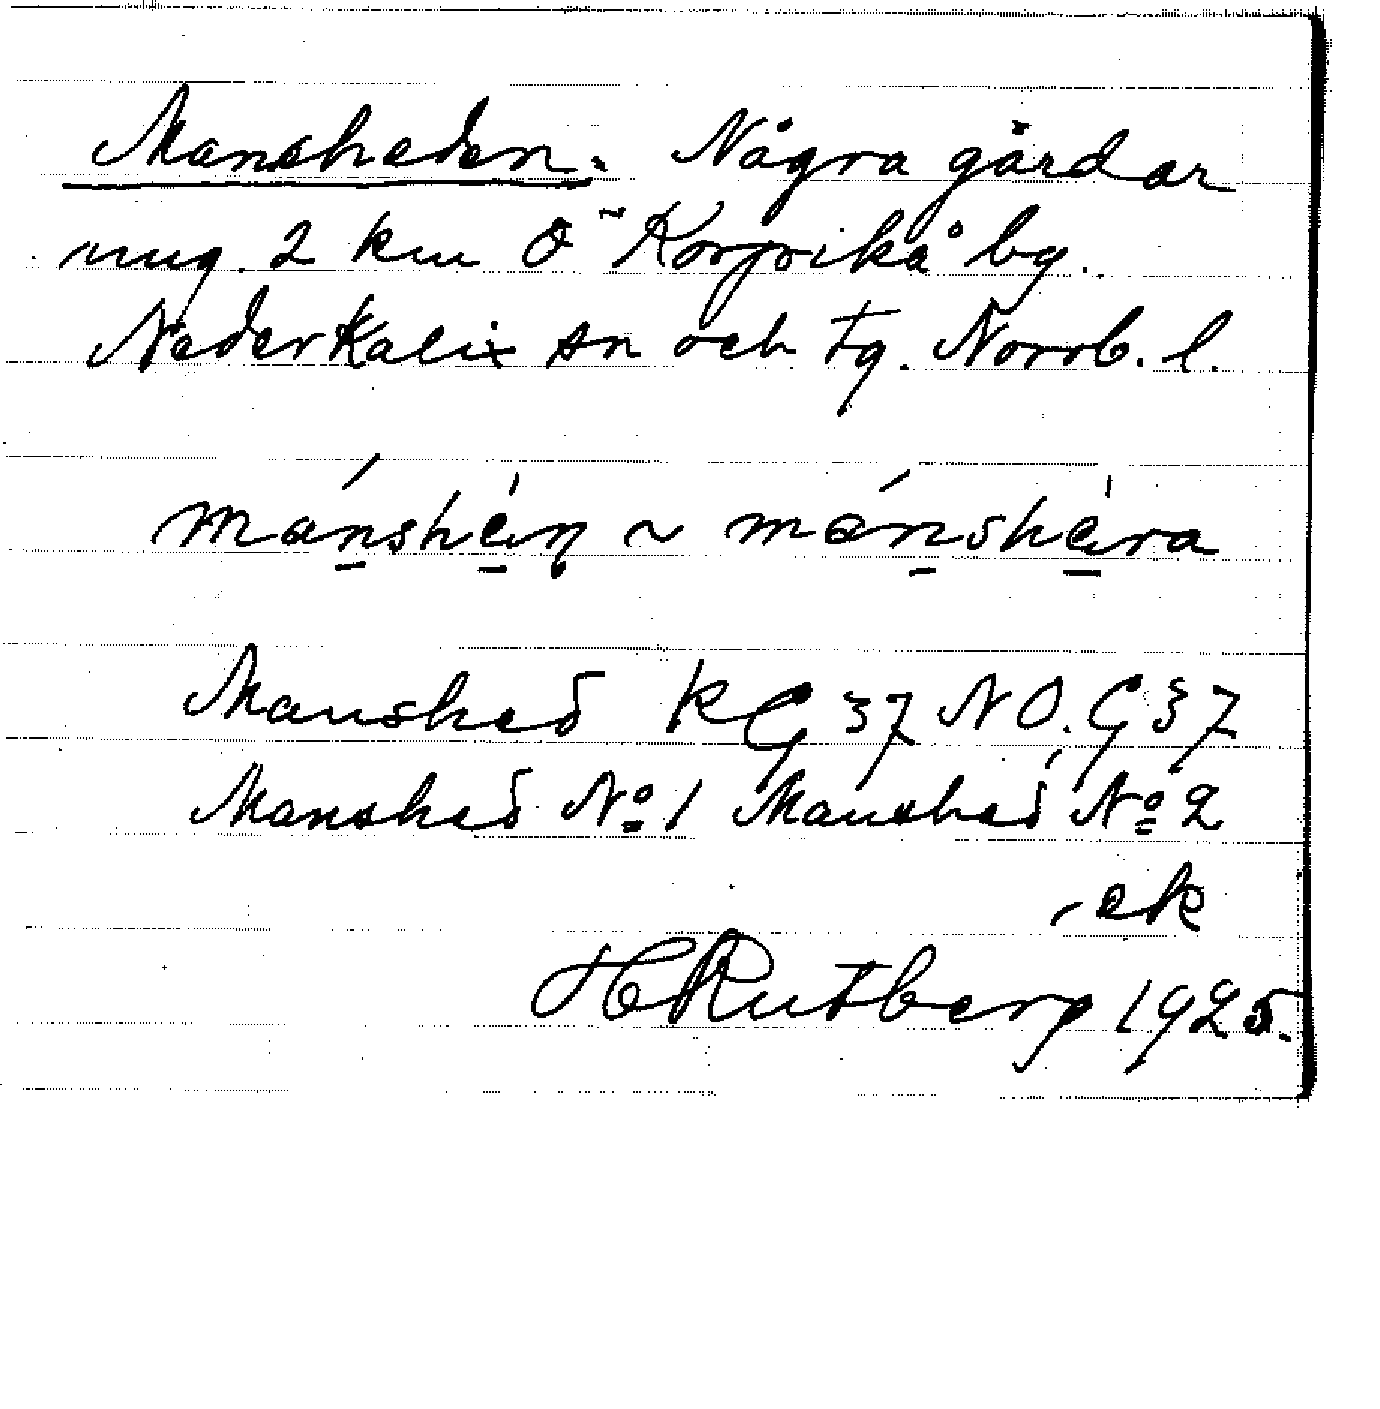 Mansheden. Några gårdar
ung. 2 km Ö Korpikå by.
Nederkalix sn och tg. Norrb. l.
mánshèn ~ mánshèra
Manshed KG 37 NO. G 37
Manshed No 1 Manshed No 2
ek
H Rutberg 1925.